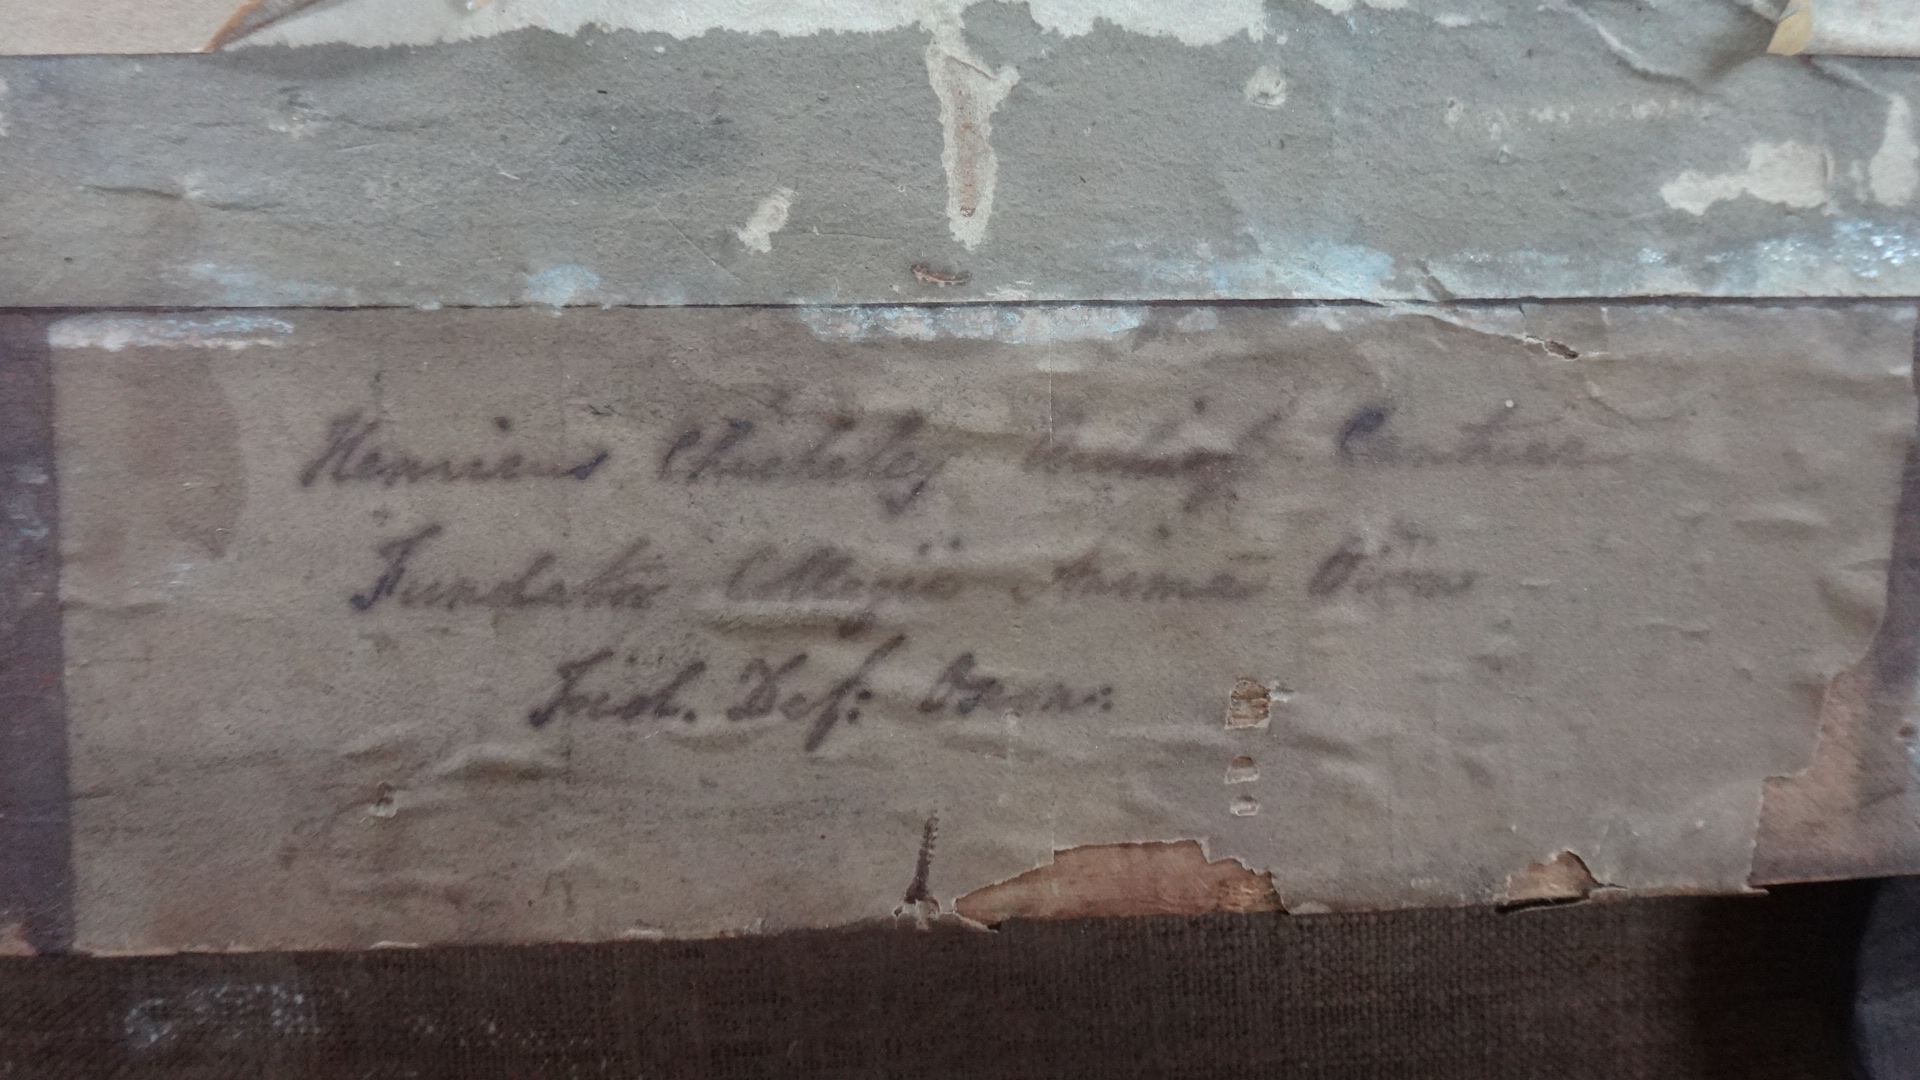 Henricus Chicheley Archiep. Cantuar
Fundator Collegii Animar Om̄
Oxon: